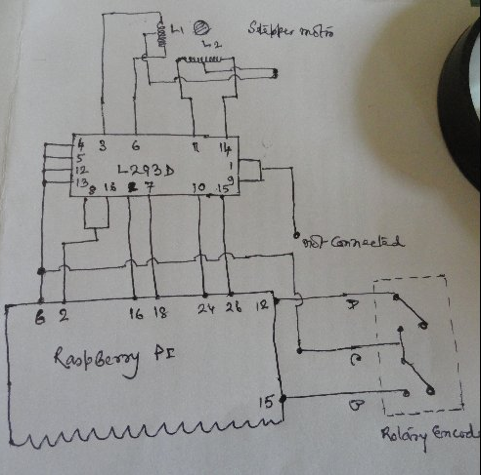 L1
L2
Stepper motro
4 3 6 11 14
5 1
12 L293D
13 9
8 16 2 7 10 15
not connected
6 2 16 18 24 26 12
Raspberry PI
15
Rotary Encod